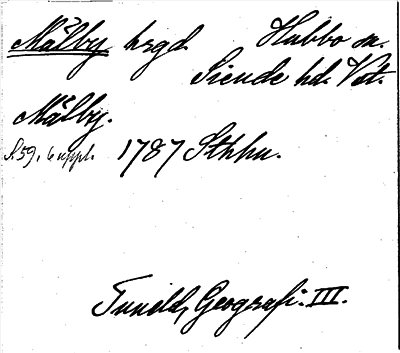 Mälby hrgd. Hubbo sn.
Siende hd. Vst.
Mälby.
S. 59, 6 uppl. 1787 Sthlm.
Tuneld, Geografi. III.